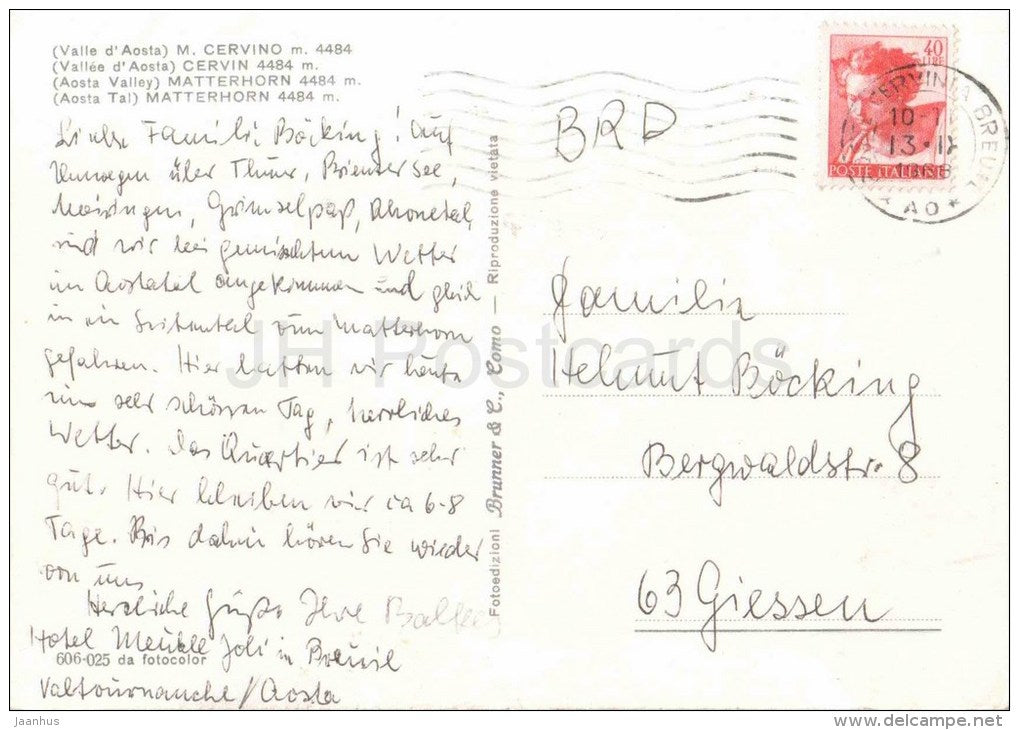 (Valle d'Aosta) M. CERVINO m. 4484
(Vallée d'Aosta) CERVIN 4484 m.
(Aosta Valley) MATTERHORN 4484 m.
(Aosta Tal) MATTERHORN 4484 m.
Liebe Familie Böcking! Auf
Umwegen über Thun, Brienzer See,
Meiringen, Grimselpaß, Rhonetal
sind wir bei gemischtem Wetter
im Aostatal angekommen und gleich
in ein Seitental zum Matterhorn
gefahren. Hier hatten wir heute
einen sehr schönen Tag, herrliches
Wetter. Das Quartier ist sehr
gut. Hier bleiben wir ca 6-8
Tage. Bis dahin hören Sie wieder
von uns
Herzliche Grüße Ihre
Hotel Meublé Joli in Breuil
Valtournanche/Aosta
606-025 da fotocolor
Fotoedizioni Brunner & C., Como - Riproduzione vietata
BRD
40
LIRE
POSTE ITALIANE
CERVINIA BREUIL
10-
13·IX
1968
* AO *
Familie
Helmut Böcking
Bergwaldstr. 8
63 Giessen
JH Postcards
Jaanhus
delcampe.net